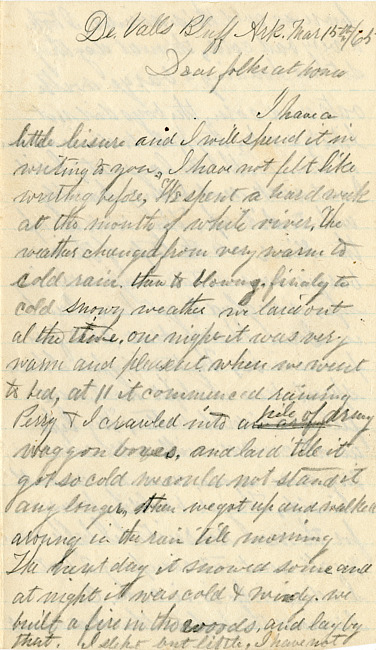 De. Valls Bluff Ark. Mar 15th/65
Dear folks at home
I have a
little leisure and I will spend it in
writing to you, I have not felt like
writing before, We spent a hard week
at the mouth of white river. The
weather changed from very warm to
cold rain. than to blowing, finaly to
cold snowy weather we laid out
al the time, one night it was very
warm and plesent when we went
to bed, at 11 it commenced raining
Perry & I crawled into a pile of army
waggon boxes, and laid 'tile it
got so cold we could not stand it
any longer, then we got up and walked
around in the rain 'till morning
The next day it snowed some and
at night it was cold & windy. we
built a fire in the woods, and lay by
that. I slept but little, I have not